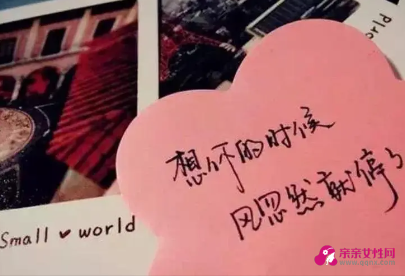 small
Small ❤ world
想你的时候
风忽然就停了
亲亲女性网